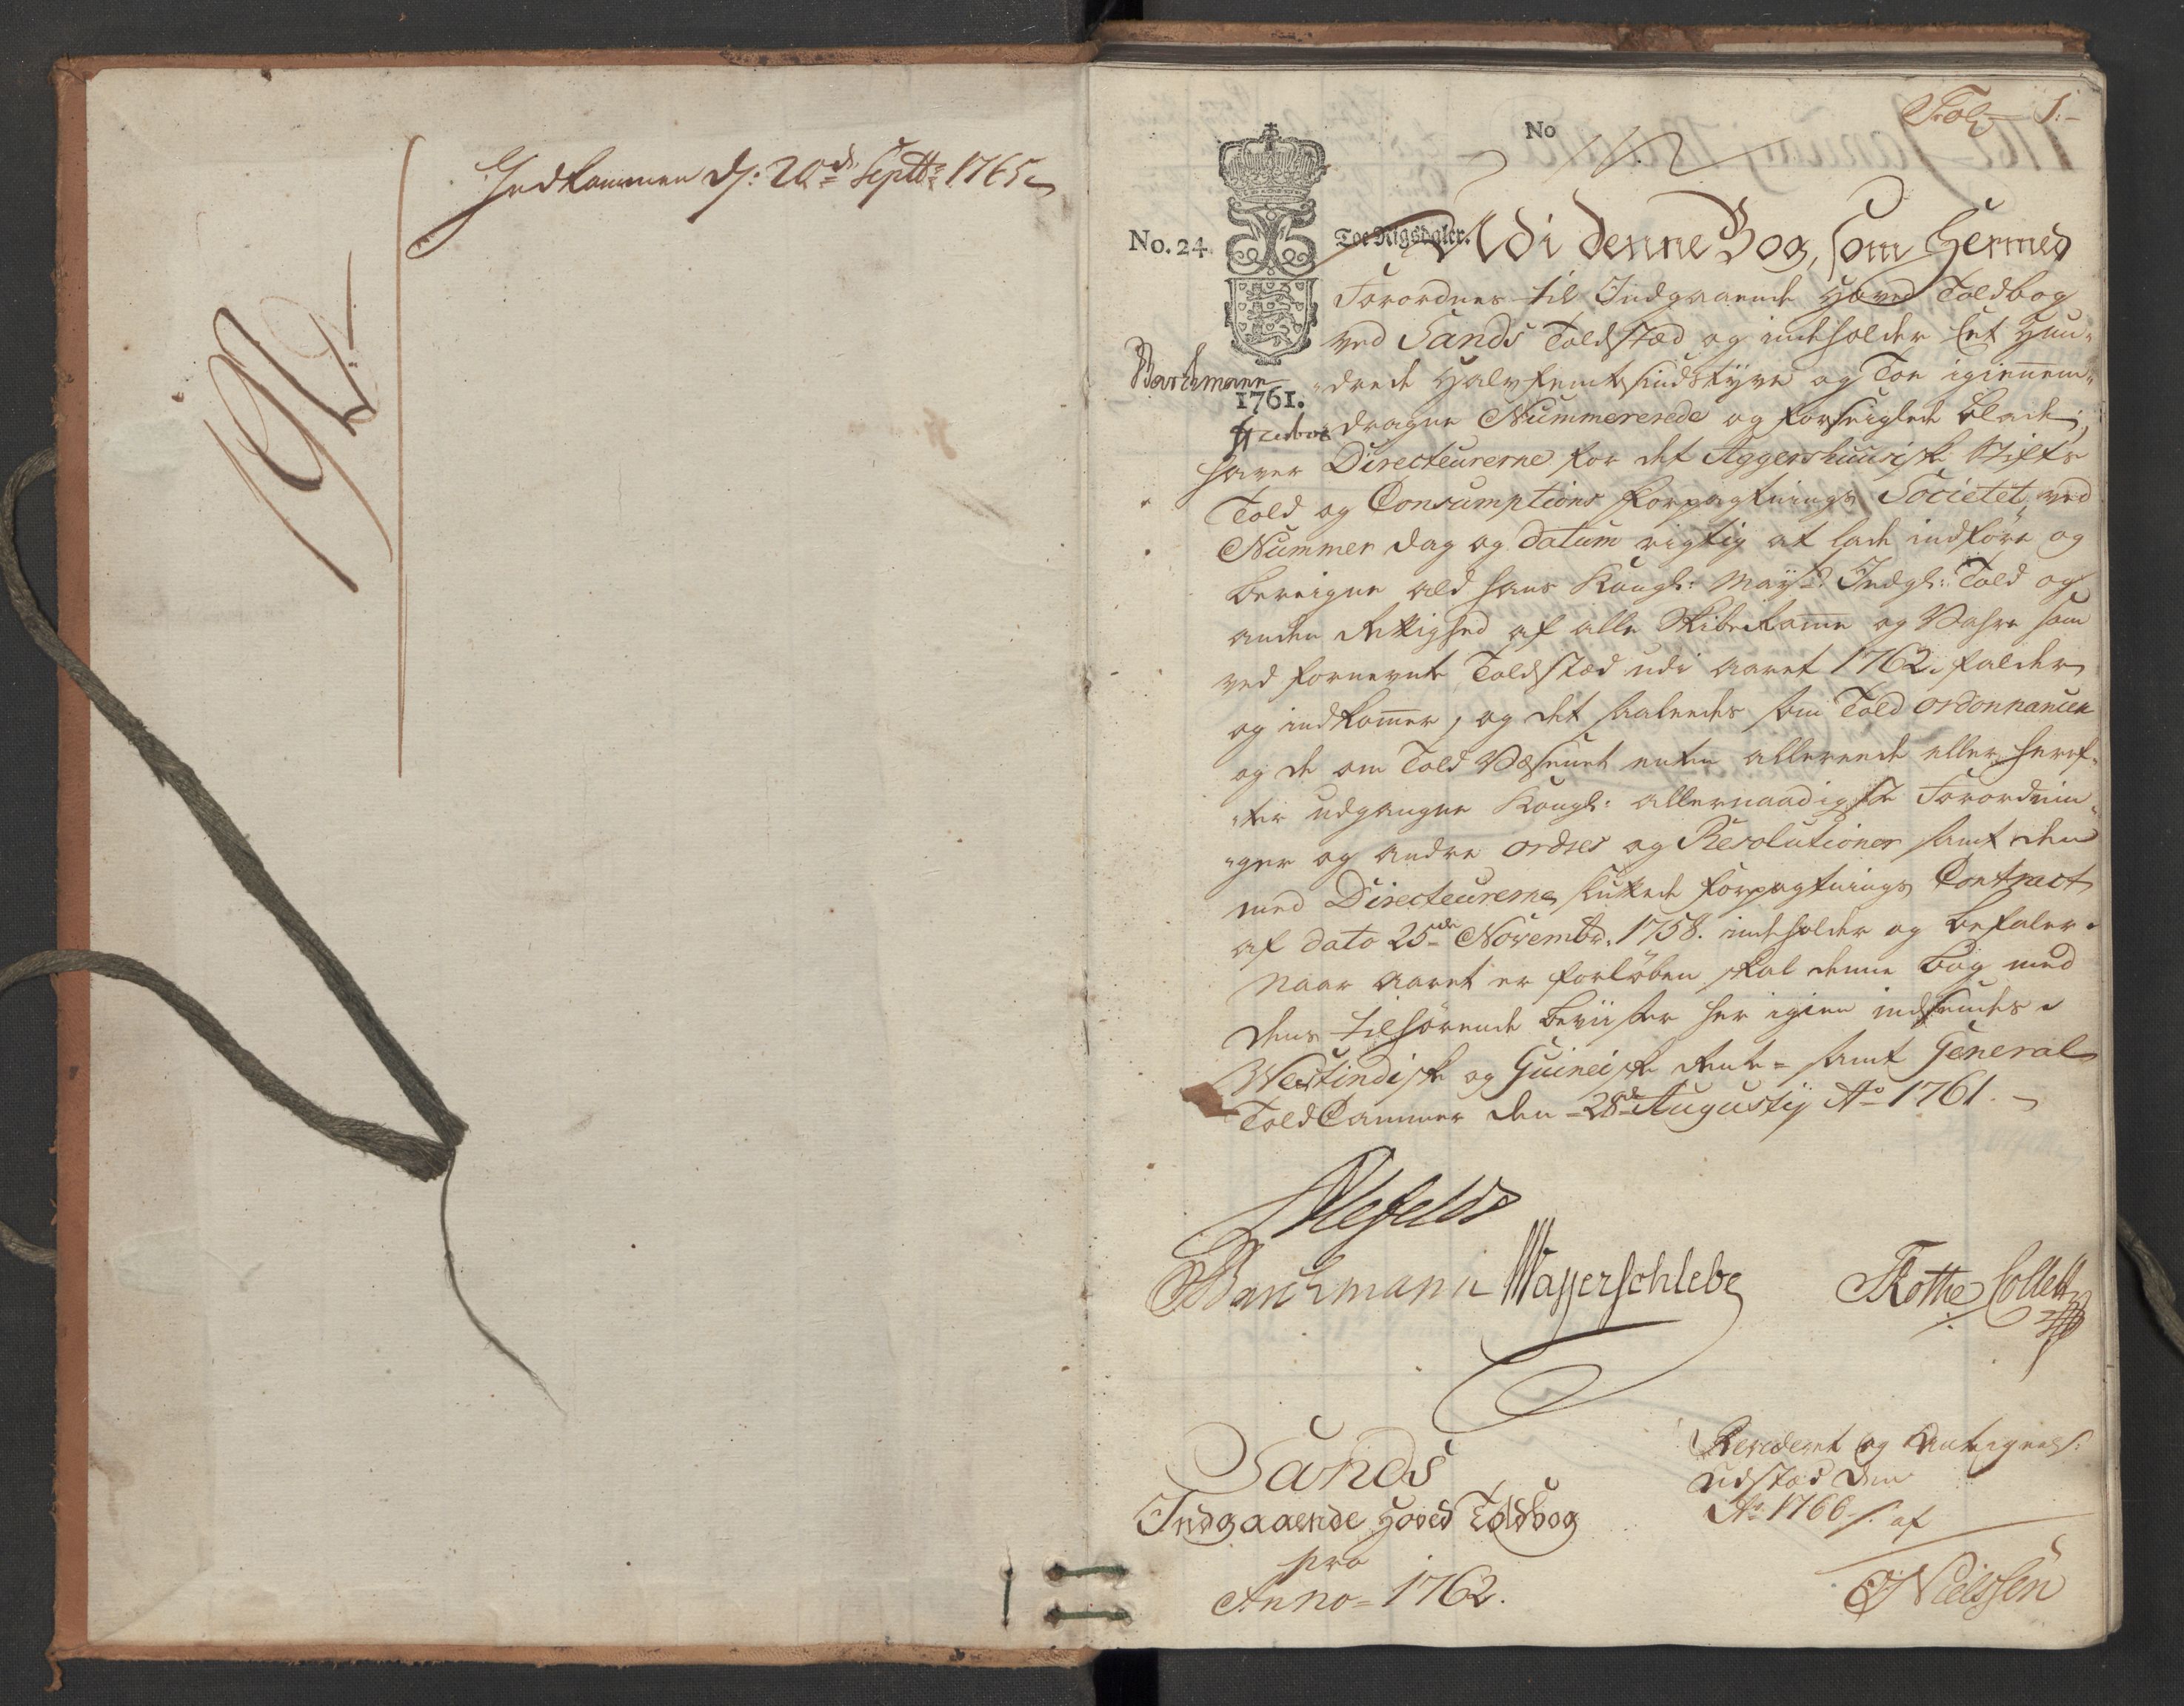 Indkommen d: 20de Septbr 1765
192
Fol: 1.
No
No. 24
Toe Rigsdaler.
Udi denne Bog, som Hermed
Forordnes til Indgaaende Hoved Toldbog
ved Sands Toldstæd og indeholder Et Hun-
Barchmann
-drede Halvfemtesindstyve og Toe igiennem-
1761.
-dragne Nummererede og forseiglede blade,
haver Directeurerne for det Aggershuusiske Stifts
Told og Consumptions Forpagtnings Societet, ved
Nummer dag og datum rigtig at lade indføre og
bereigne ald hans Kongl: Mayts: Indgl: Told og
anden Rettighed af alle Skibe Komne og Vahre som
ved fornevnte Toldstæd udi aaret 1762. falder
og indkommer, og det saaledes som Told ordonnancen
og de om Told Væsenet enten allerede eller heref-
-ter udgangne Kongl: allernaadigste Forordnin-
-ger og andre ordres og Resolutioner samt den
med Directeurerne sluttede Forpagtnings Contract
af dato 25de Novembr. 1758. indeholder og befaler.
Naar aaret er forløben skal denne bog med
dens tilhørende beviiser her igien indsendes
Westindiske og Guineiske Rente- samt General
ToldCammer den 28de Augustij Ao 1761.
Ahlefeldt
Barchmann Wasserschlebe Rothe Collett
Sands
Indgaaende Hoved Toldbog
pro
Anno 1762.
Revideret og Antegnels:
udstæd den
Ao 1766 af
Nielssen